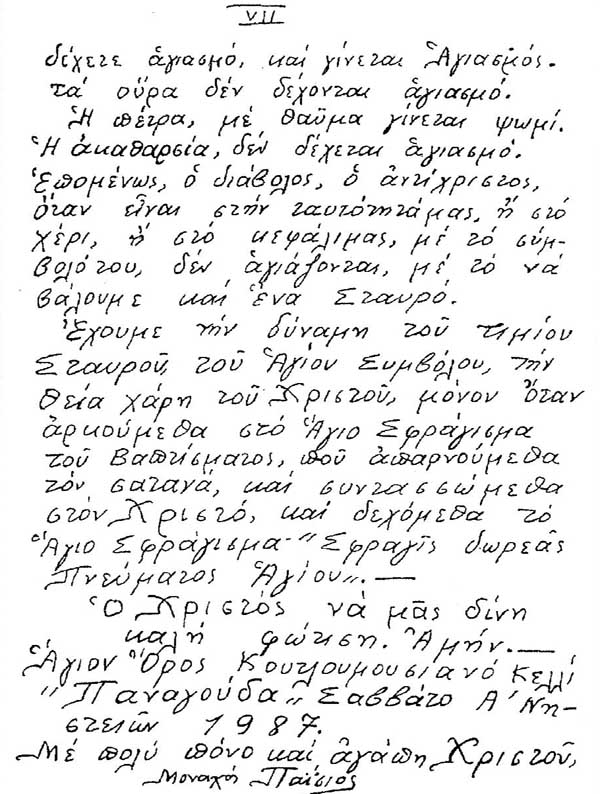 VII
δέχετε ἁγιασμό, καί γίνεται Ἁγιασμός.
τά οὖρα δέν δέχονται ἁγιασμό.
Ἡ πέτρα, μέ θαῦμα γίνεται ψωμί.
Ἡ ἀκαθαρσία, δέν δέχεται ἁγιασμό.
Ἑπομένως, ὁ διάβολος, ὁ ἀντίχριστος,
ὅταν εἶναι στήν ταυτότητάμας, ἤ στό
χέρι, ἤ στό κεφάλιμας, μέ τό σύμ-
βολότου, δέν ἁγιάζονται, μέ τό νά
βάλουμε καί ἕνα Σταυρό.
Ἔχουμε τήν δύναμη τοῦ τιμίου
Σταυροῦ, τοῦ Ἁγίου Συμβόλου, τήν
θεία χάρη τοῦ Χριστοῦ, μόνον ὅταν
ἀρκούμεθα στό Ἅγιο Σφράγισμα
τοῦ Βαπτίσματος, πού ἀπαρνούμεθα
τόν σατανά, καί συντασσώμεθα
στόν Χριστό, καί δεχόμεθα τό
Ἅγιο Σφράγισμα - "Σφραγῖς δωρεᾶς
Πνεύματος Ἁγίου". —
Ὁ Χριστός νά μᾶς δίνη
καλή φώτιση. Ἀμήν. —
Ἅγιον Ὄρος Κουτλουμουσιανό Κελλί
"Παναγούδα" Σαββάτο Α΄ Νη-
στειῶν 1987.
Μέ πολύ πόνο καί ἀγάπη Χριστοῦ,
Μοναχός Παΐσιος